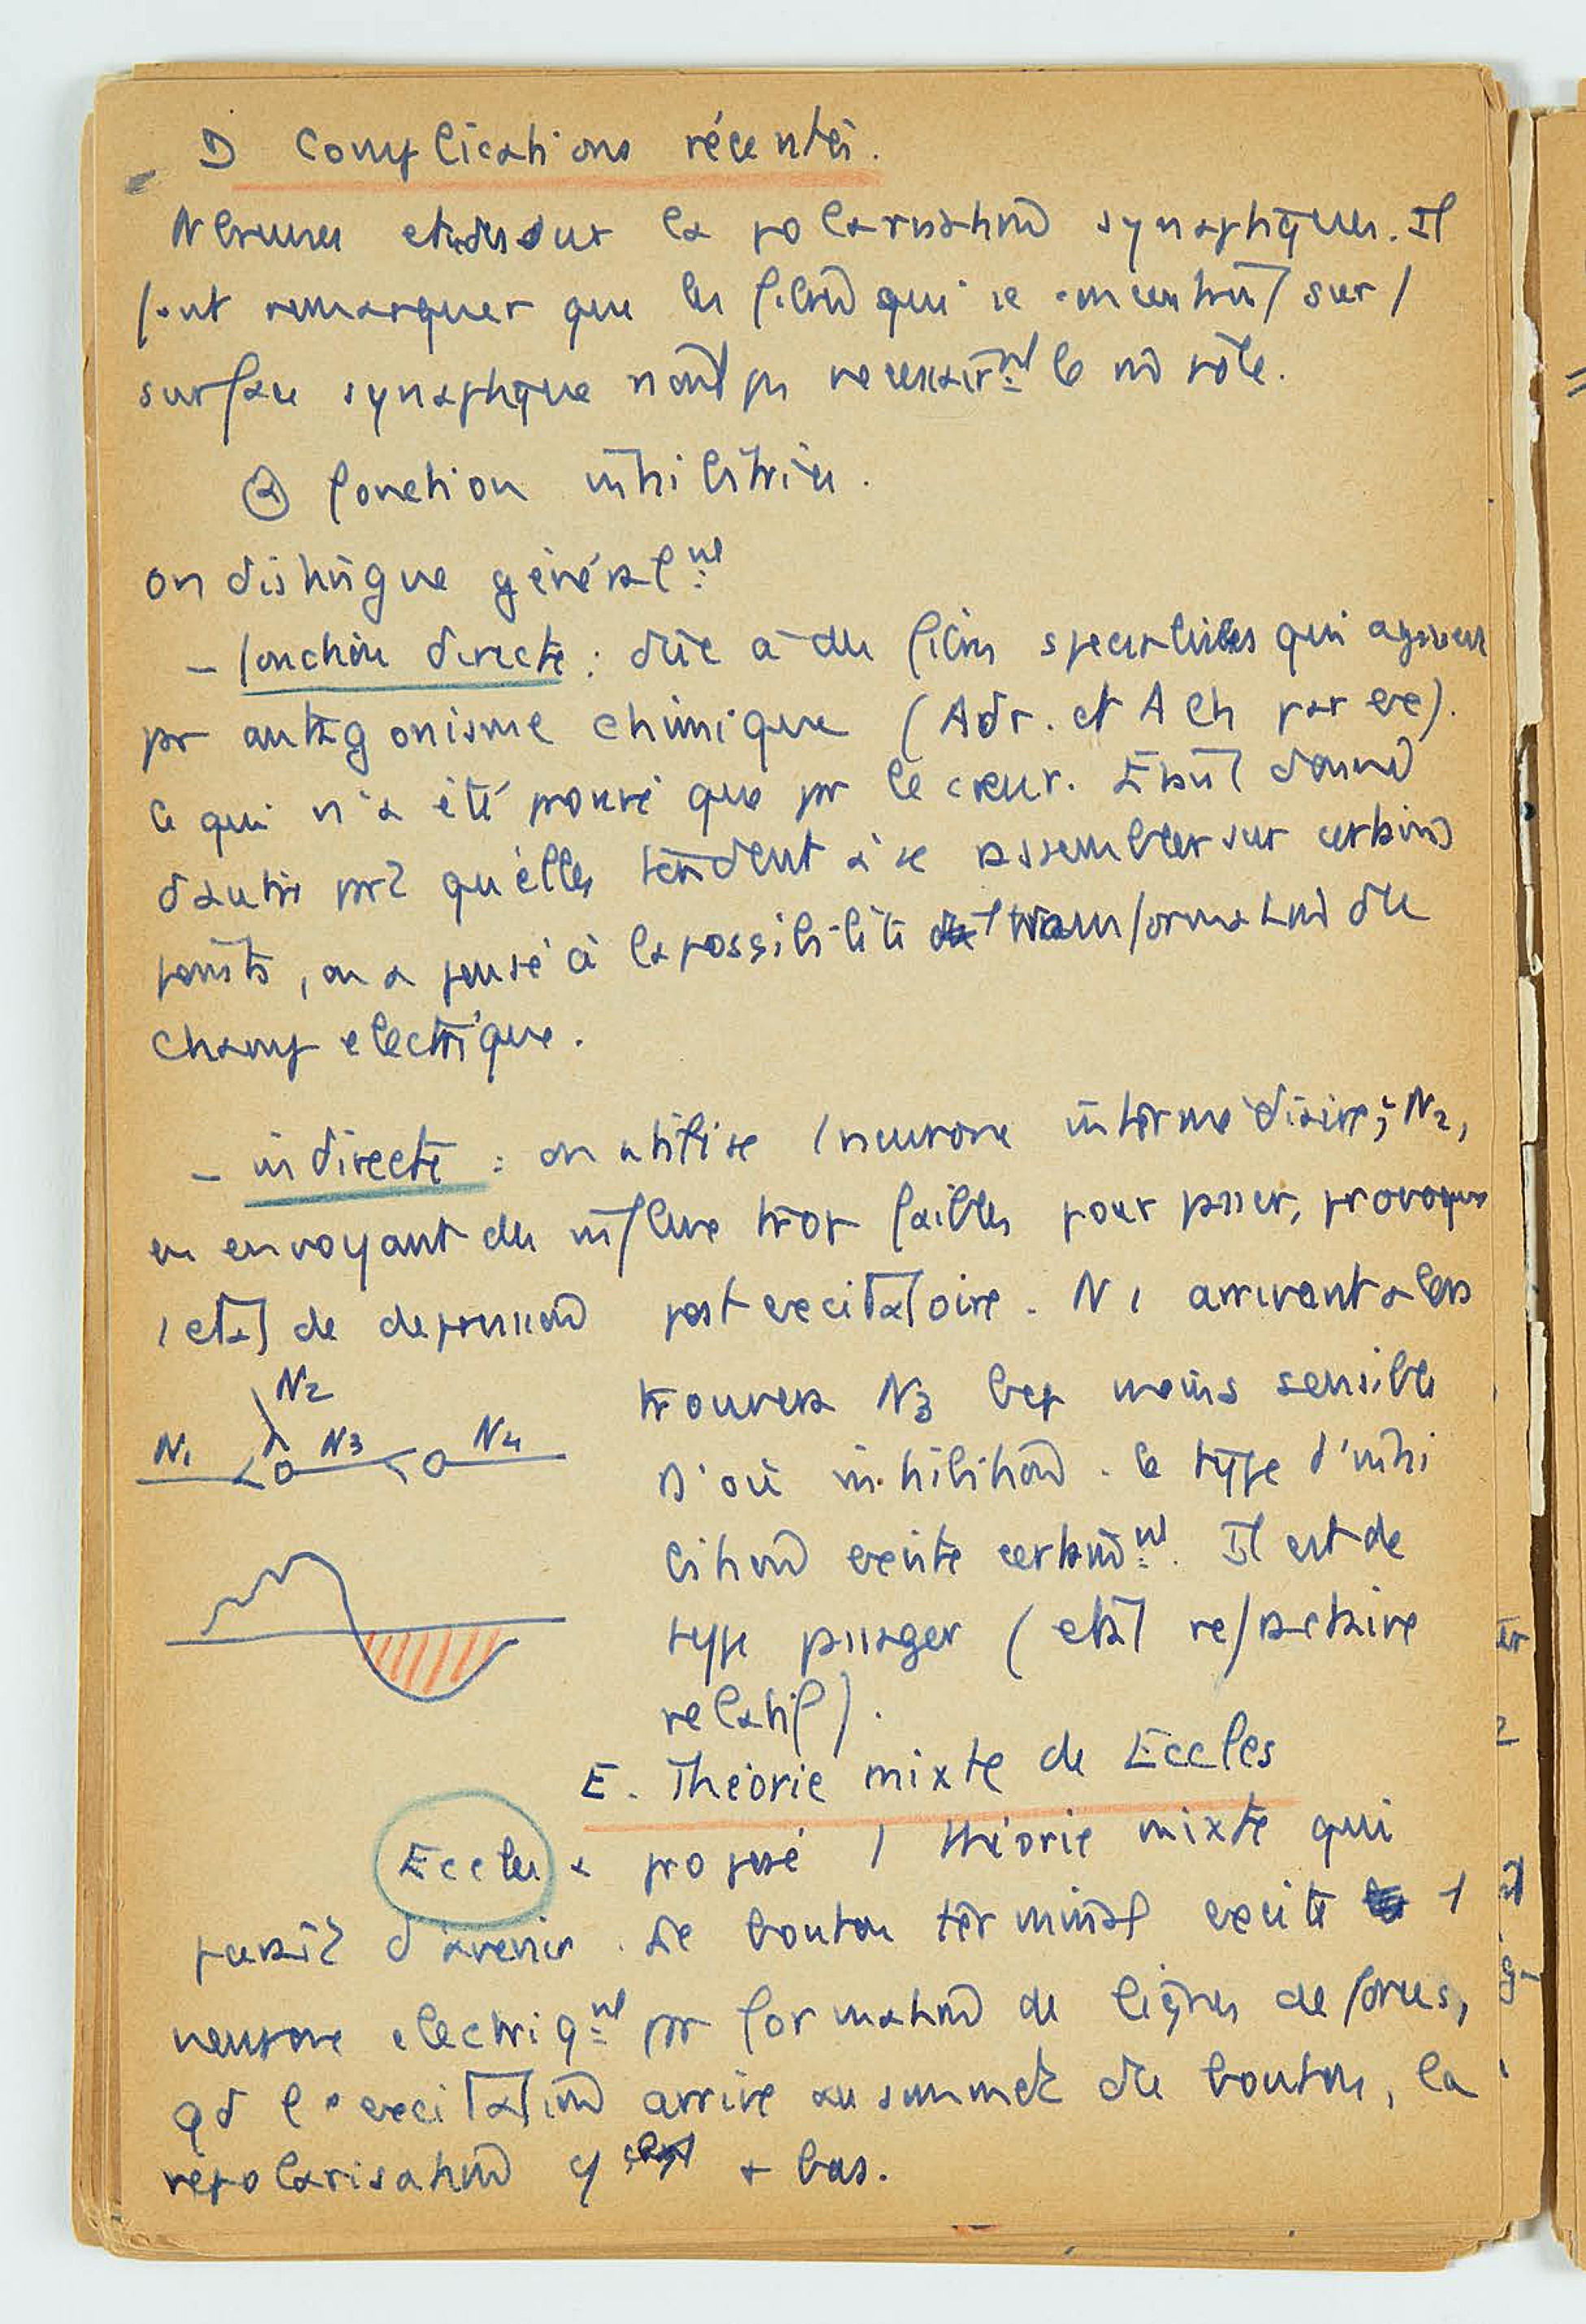 D Complications récentes.
Nbreuses etudes sur la polarisation synaptiques. Il
faut remarquer que les fibres qui se concentrent sur 1
surface synaptique n'ont pas necessairmt le m rôle.
② fonction inhibitrice.
on distingue généralmt
- fonction directe : dûe à des fibres specialisées qui agissent
pr antagonisme chimique (Adr. et A Ch par ex).
Ce qui n'a été prouvé que pr le cœur. Etant donné
d'autre prt qu'elles tendent à se assembler sur certains
points, on a pensé à la possibilité 1 transformation du
champ electrique.
- indirecte : on utilise 1 neurone intermédiaire ; N2,
en envoyant des influx trop faibles pour passer, provoque
1 etat de depression post excitatoire. N1 arrivant alors
trouvera N3 bcp moins sensible
D'où inhibition. Ce type d'inhi
bition existe certainmt. Il est de
type passager (etat refractaire
relatif).
N2
N1 N3 N4
E. Théorie mixte de Eccles
Eccles a proposé 1 théorie mixte qui
parait d'avenir. Le bouton terminal excite 1
neurone electriqmt pr formation de lignes de forces,
qd l'excitation arrive au sommet du bouton, la
repolarisation y + bas.